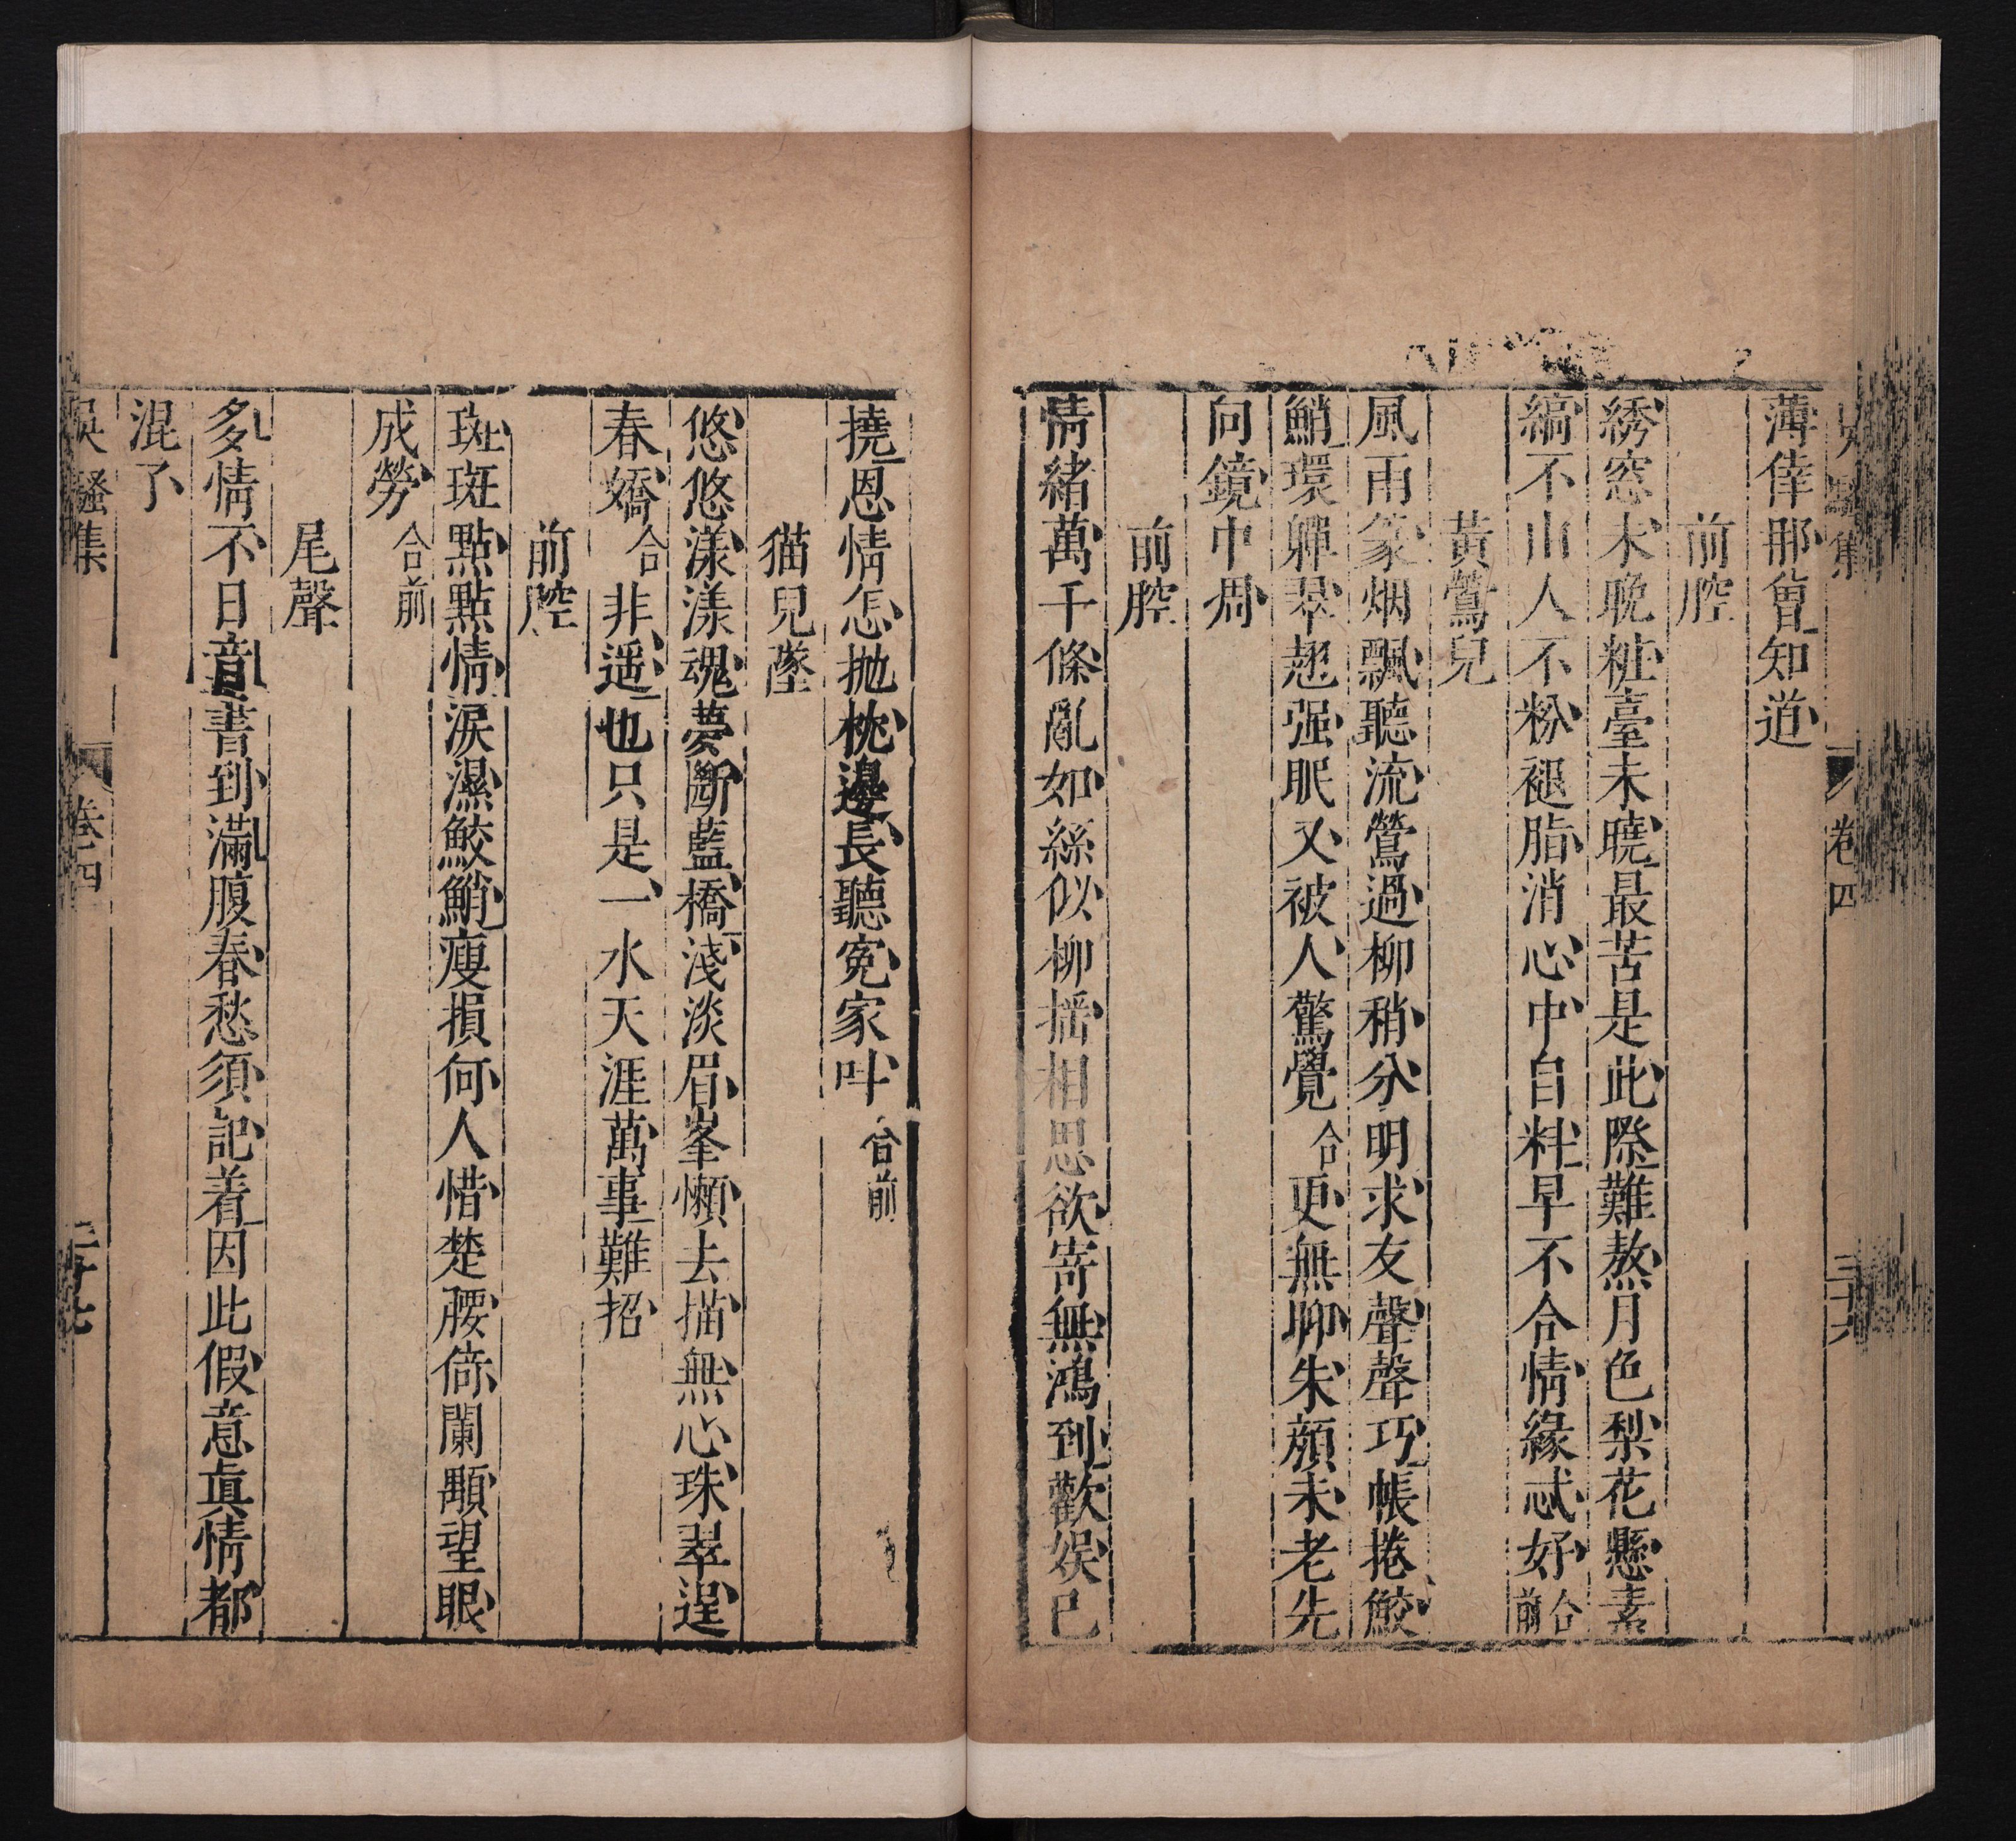 吳騷集 卷四 三十六
薄倖那曾知道
前腔
綉窓未晚粧臺未曉最苦是此際難熬月色梨花懸素
縞不由人不粉褪脂消心中自料早不合情緣忒好合前
黃鶯兒
風雨篆烟飄聽流鶯過柳稍分明求友聲聲巧帳捲鮫
鮹環軃翠翹强眠又被人驚覺合更無聊朱顔未老先
向鏡中凋
前腔
情緒萬千條亂如絲似柳揺相思欲寄無鴻到歡娛已
撓恩情怎抛枕邊長聽寃家呌合前
猫兒墜
悠悠漾漾魂夢斷藍橋淺淡眉峯懶去描無心珠翠逞
春嬌合非遥也只是一水天涯萬事難招
前腔
斑斑點點情淚濕鮫鮹瘦損何人惜楚腰倚闌顒望眼
成勞合前
尾聲
多情不日音書到滿腹春愁須記着因此假意眞情都
混了
吳騷集 卷四 三十七